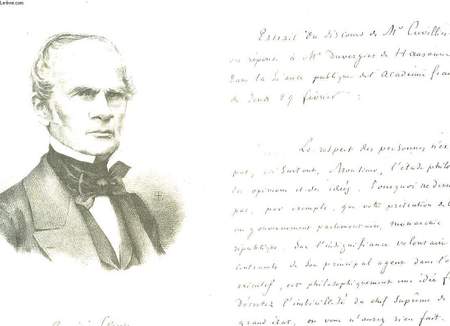 Extrait du discours de Mr Cuvillier
en réponse à Mr Duvergier de Hauranne
dans la séance publique de l'Académie fran
du Jeudi 29 février :
Le respect des personnes n'ex
pas, ni surtout, Monsieur, l'étude philo
des opinions et des idées. Pourquoi ne
pas, par exemple, que votre
ou gouvernement parlementaire, monarchie
république, sur l'insignifiance volontaire
contrainte de son principal agent dans l'o
exécutif, est philosophiquement une idée f
Décrétez l'inutilité du chef suprême de
grand état, ou vous n'aurez rien fait.